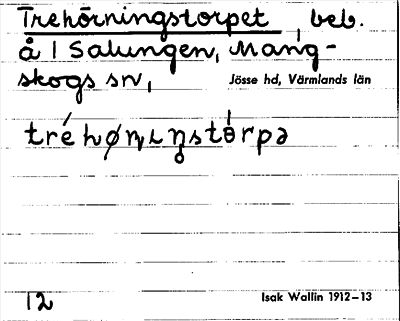 Trehörningstorpet, beb.
å 1 Salungen, Mang-
skogs sn, Jösse hd, Värmlands län
tréhøṇıṇ̊stórpə
12 Isak Wallin 1912–13